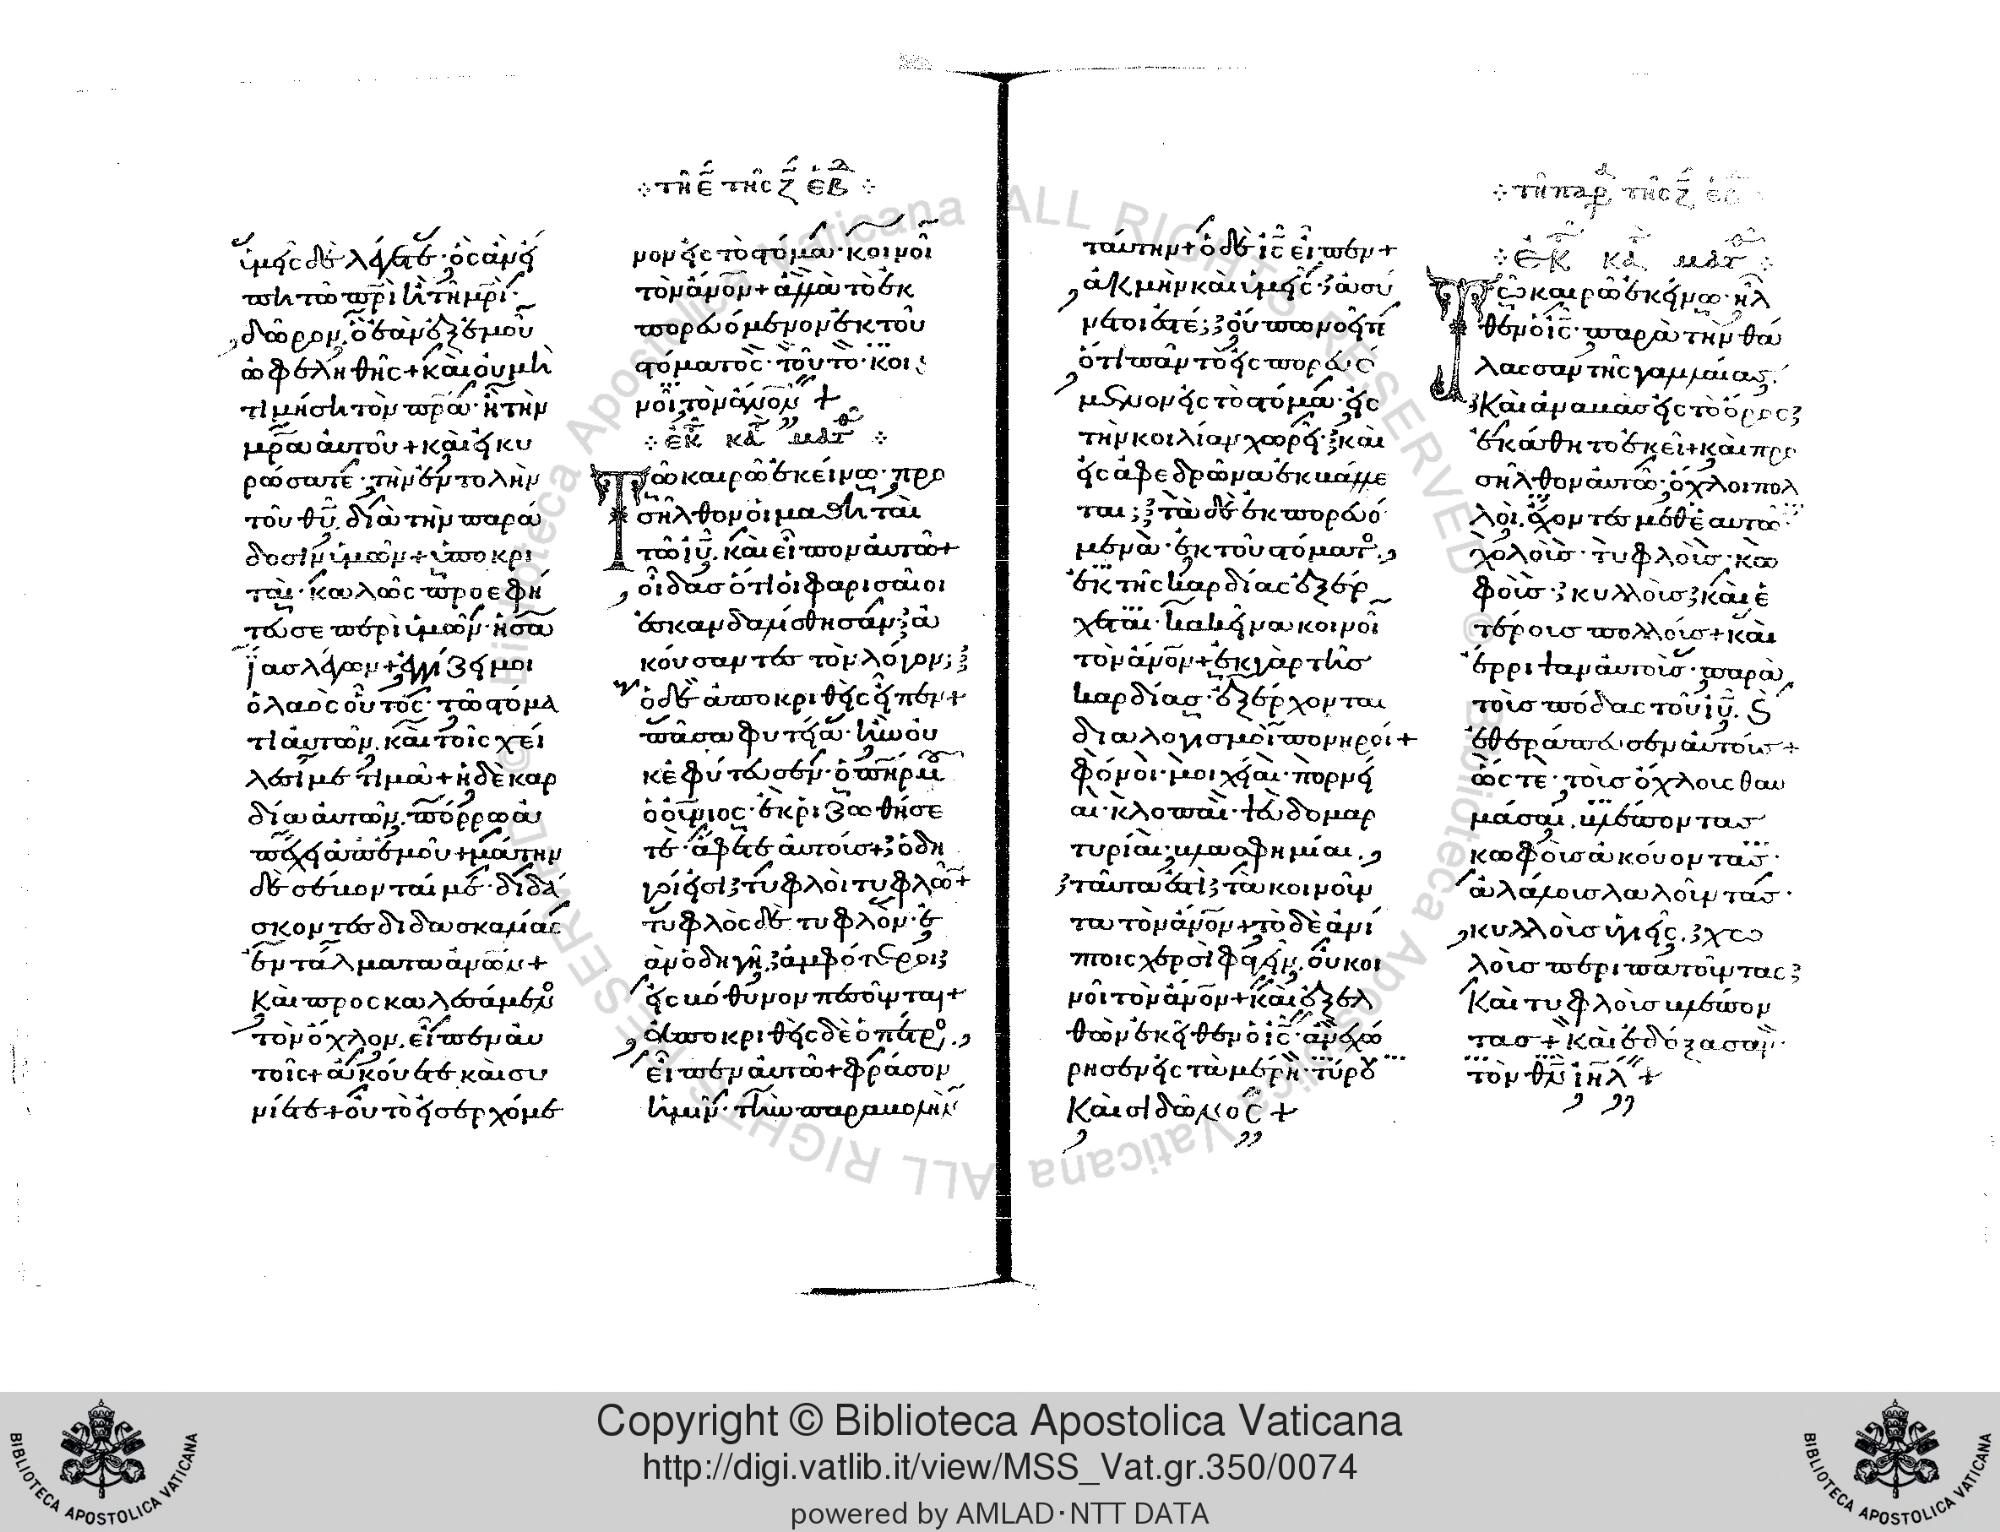 ὑμεῖς δὲ λέγετε· ὃς ἂν εἴ
πῃ τῷ πρι ἢ τῇ μρι·
δῶρον, ὃ ἐὰν ἐξ ἐμοῦ
ὠφεληθῇς + καὶ οὐ μὴ
τιμήσῃ τὸν πρα· ἢ τὴν
μρα αὐτοῦ + καὶ ἠκυ
ρώσατε· τὴν ἐντολὴν
τοῦ θυ, διὰ τὴν παρά
δοσιν ὑμῶν + ὑποκρι
ταὶ· καλῶς προεφή
τευσε περὶ ὑμῶν· ἡσα
ΐας λέγων + ἐγγίζει μοι
ὁ λαὸς οὗτος· τῷ στόμα
τι αὐτῶν, καὶ τοῖς χεί
λεσί με τιμᾷ + ἡ δὲ καρ
δία αὐτῶν, πόρρω ἀ
πέχει ἀπ' ἐμοῦ + μάτην
δὲ σέβονταί με· διδά
σκοντες διδασκαλίας
ἐντάλματα ἀνων +
Καὶ προσκαλεσάμενος
τὸν ὄχλον, εἶπεν αὐ
τοῖς + ἀκούετε καὶ συ
νίετε + οὐ τὸ εἰσερχόμε
τῇ ε τῆς ζ ἑβδ
νον εἰς τὸ στόμα· κοινοῖ
τὸν ἀνον + ἀλλὰ τὸ ἐκ
πορευόμενον ἐκ τοῦ
στόματος· τοῦτο κοι
νοῖ τὸν ἀνον +
ἐκ κα ματθ
Τῷ καιρῷ ἐκείνῳ· προ
σῆλθον οἱ μαθηταὶ
τῷ ιυ, καὶ εἶπον αὐτῷ +
οἶδας ὅτι οἱ φαρισαῖοι
ἐσκανδαλίσθησαν ἀ
κούσαντες τὸν λόγον;
ὁ δὲ ἀποκριθεὶς εἶπεν +
πᾶσα φυτεία· ἣν οὐ
κ ἐφύτευσεν· ὁ πηρ μου
ὁ οὐνιος· ἐκριζωθήσε
ται· ἄφετε αὐτούς + ὁδη
γοί εἰσι τυφλοὶ τυφλῶν +
τυφλὸς δὲ τυφλὸν· ἐ
ὰν ὁδηγῇ, ἀμφότεροι
εἰς βόθυνον πεσοῦνται +
ἀποκριθεὶς δὲ ὁ πέτρος,
εἶπεν αὐτῷ + φράσον
ἡμῖν· τὴν παραβολὴν
ταύτην + ὁ δὲ ις εἶπεν +
ἀκμὴν καὶ ὑμεῖς ἀσύ
νετοί ἐστέ; οὔπω νοεῖτε
ὅτι πᾶν τὸ εἰσπορευ
όμενον εἰς τὸ στόμα· εἰς
τὴν κοιλίαν χωρεῖ· καὶ
εἰς ἀφεδρῶνα ἐκβάλλε
ται; τὰ δὲ ἐκπορευό
μενα· ἐκ τοῦ στόματος,
ἐκ τῆς καρδίας ἐξέρ
χεται· κἀκεῖνα κοινοῖ
τὸν ἀνον + ἐκ γὰρ τῆς
καρδίας· ἐξέρχονται
διαλογισμοὶ πονηροί +
φόνοι· μοιχεῖαι· πορνεῖ
αι· κλοπαὶ· ψευδομαρ
τυρίαι· βλασφημίαι,
ταῦτά ἐστι τὰ κοινοῦν
τα τὸν ἀνον + τὸ δὲ ἀνί
πτοις χερσὶ φαγεῖν, οὐ κοι
νοῖ τὸν ἀνον + καὶ ἐξελ
θὼν ἐκεῖθεν ὁ ις· ἀνεχώ
ρησεν εἰς τὰ μέρη· τύρου
Καὶ σιδῶνος +
τῇ παρ τῆς ζ ἑβδ
ἐκ κα ματθ
Τῷ καιρῷ ἐκείνῳ· ἦλ
θεν ὁ ις· παρὰ τὴν θά
λασσαν τῆς γαλιλαίας,
Καὶ ἀναβὰς εἰς τὸ ὄρος
ἐκάθητο ἐκεῖ + καὶ προ
σῆλθον αὐτῷ· ὄχλοι πολ
λοὶ, ἔχοντες μεθ' ἑαυτῶν
χωλοὺς· τυφλοὺς· κω
φοὺς· κυλλοὺς καὶ ἑ
τέρους πολλούς + καὶ
ἔρριψαν αὐτοὺς· παρὰ
τοὺς πόδας τοῦ ιυ, καὶ
ἐθεράπευσεν αὐτούς +
ὥστε· τοὺς ὄχλους θαυ
μάσαι, βλέποντας
κωφοὺς ἀκούοντας·
ἀλάλους λαλοῦντας·
κυλλοὺς ὑγιεῖς, χω
λοὺς περιπατοῦντας
Καὶ τυφλοὺς βλέπον
τας + Καὶ ἐδόξασαν·
τὸν θν ιηλ +
Copyright © Biblioteca Apostolica Vaticana
http://digi.vatlib.it/view/MSS_Vat.gr.350/0074
powered by AMLAD·NTT DATA
BIBLIOTECA APOSTOLICA VATICANA
BIBLIOTECA APOSTOLICA VATICANA